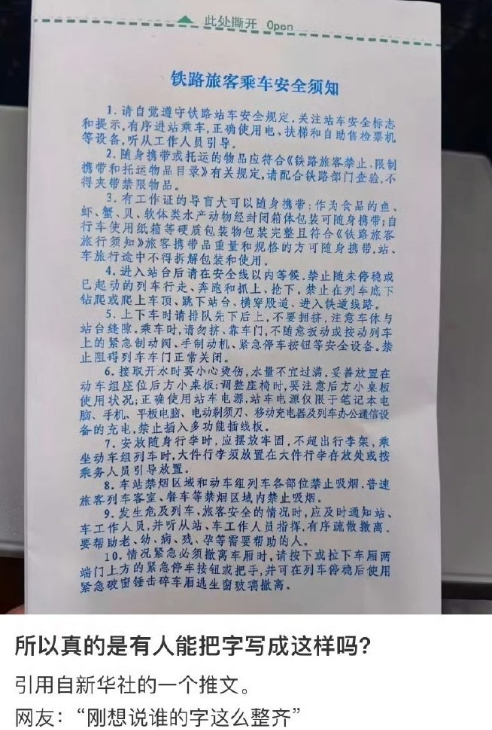 此处撕开 Open
铁路旅客乘车安全须知
1.请自觉遵守铁路站车安全规定,关注站车安全标志
和提示,有序进站乘车,正确使用电、扶梯和自助售检票机
等设备,听从工作人员引导。
2.随身携带或托运的物品应符合《铁路旅客禁止、限制
携带和托运物品目录》有关规定,请配合铁路部门查验,不
得夹带禁限物品。
3.有工作证的导盲犬可以随身携带;作为食品的鱼、
虾、蟹、贝、软体类水产动物经封闭箱体包装可随身携带;自
行车使用纸箱等硬质包装物包装完整且符合《铁路旅客
旅行须知》旅客携带品重量和规格的方可随身携带,站、
车旅行途中不得拆解包装和使用。
4.进入站台后请在安全线以内等候,禁止随未停稳或
已起动的列车行走、奔跑和抓上、抢下,禁止在列车底下
钻爬或爬上车顶、跳下站台、横穿股道、进入铁道线路。
5.上下车时请排队先下后上,不要拥挤,注意车体与
站台缝隙。乘车时,请勿挤、靠车门,不随意扳动或按动列车
上的紧急制动阀、手制动机、紧急停车按钮等安全设备,禁
止阻碍列车车门正常关闭。
6.接取开水时要小心烫伤,水量不宜过满,妥善放置在
动车组座位后方小桌板;调整座椅时,要注意后方小桌板
使用状况;正确使用站车电源,站车电源仅限于笔记本电
脑、手机、平板电脑、电动剃须刀、移动充电器及列车办公通信设
备的充电,禁止插入多功能插线板。
7.安放随身行李时,应摆放牢固,不超出行李架,乘
坐动车组列车时,大件行李须放置在大件行李存放处或按
乘务人员引导放置。
8.车站禁烟区域和动车组列车各部位禁止吸烟。普速
旅客列车客室、餐车等禁烟区域内禁止吸烟。
9.发生危及列车、旅客安全的情况时,应及时通知站、
车工作人员,并听从站、车工作人员指挥,有序疏散撤离。
要帮助老、幼、病、残、孕等需要帮助的人。
10.情况紧急必须撤离车厢时,请按下或拉下车厢两
端门上方的紧急停车按钮或把手,并可在列车停稳后使用
紧急破窗锤击碎车厢逃生窗玻璃撤离。
所以真的是有人能把字写成这样吗?
引用自新华社的一个推文。
网友:“刚想说谁的字这么整齐”